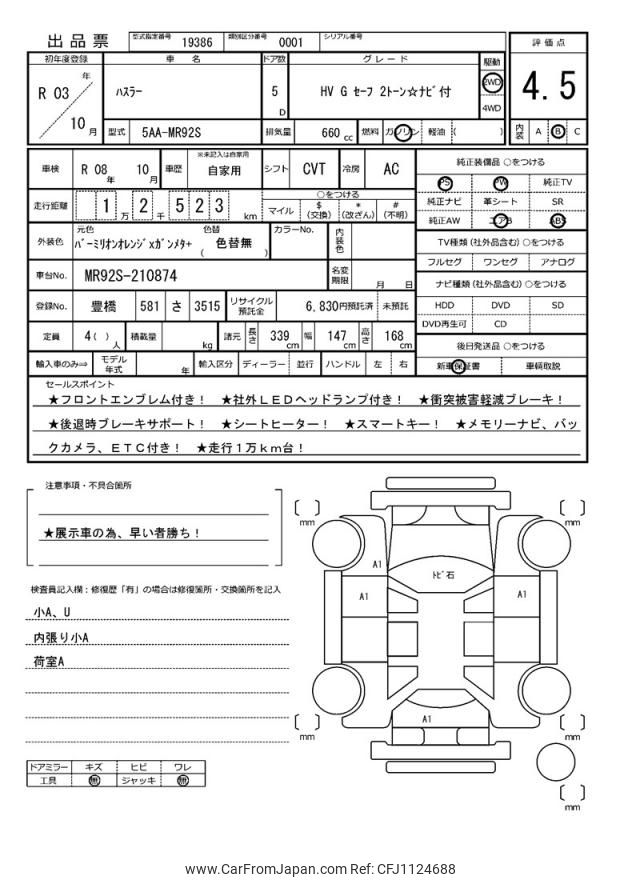 出品票 型式指定番号 19386 類別区分番号 0001 シリアル番号
評価点
4.5
内装 A B C
初年度登録 車名 ドア数 グレード 駆動
R 03 年 10 月
ハスラー 5 D HV G セーフ 2トーン☆ナビ付 2WD 4WD
型式 5AA-MR92S 排気量 660 cc 燃料 ガソリン 軽油 ( )
車検 R 08 年 10 月 車歴 ※未記入は自家用 自家用 シフト CVT 冷房 AC
走行距離 1 万 2 千 5 2 3 km
○をつける
マイル $ (交換) * (改ざん) # (不明)
外装色 元色 バーミリオンオレンジxガンメタ+ 色替 ( 色替無 ) カラーNo. 内装色
車台No. MR92S-210874 名変期限 月 日
登録No. 豊橋 581 さ 3515 リサイクル預託金 6,830円預託済 未預託
定員 4( ) 人 積載量 kg 諸元 長さ 339 cm 幅 147 cm 高さ 168 cm
輸入車のみ⇒ モデル年式 年 輸入区分 ディーラー 並行 ハンドル 左 右
純正装備品 ○をつける
PS PW 純正TV
純正ナビ 革シート SR
純正AW エアB ABS
TV種類(社外品含む)○をつける
フルセグ ワンセグ アナログ
ナビ種類(社外品含む)○をつける
HDD DVD SD
DVD再生可 CD
後日発送品 ○をつける
新車保証書 車輌取説
セールスポイント
★フロントエンブレム付き! ★社外LEDヘッドランプ付き! ★衝突被害軽減ブレーキ!
★後退時ブレーキサポート! ★シートヒーター! ★スマートキー! ★メモリーナビ、バッ
クカメラ、ETC付き! ★走行1万km台!
注意事項・不具合箇所
★展示車の為、早い者勝ち!
検査員記入欄:修復歴「有」の場合は修復箇所・交換箇所を記入
小A、U
内張り小A
荷室A
ドアミラー キズ ヒビ ワレ
工具 無 ジャッキ 無
mm
mm
A1
トビ石
A1
A1
A1
mm
mm
mm
www.CarFromJapan.com Ref: CFJ1124688